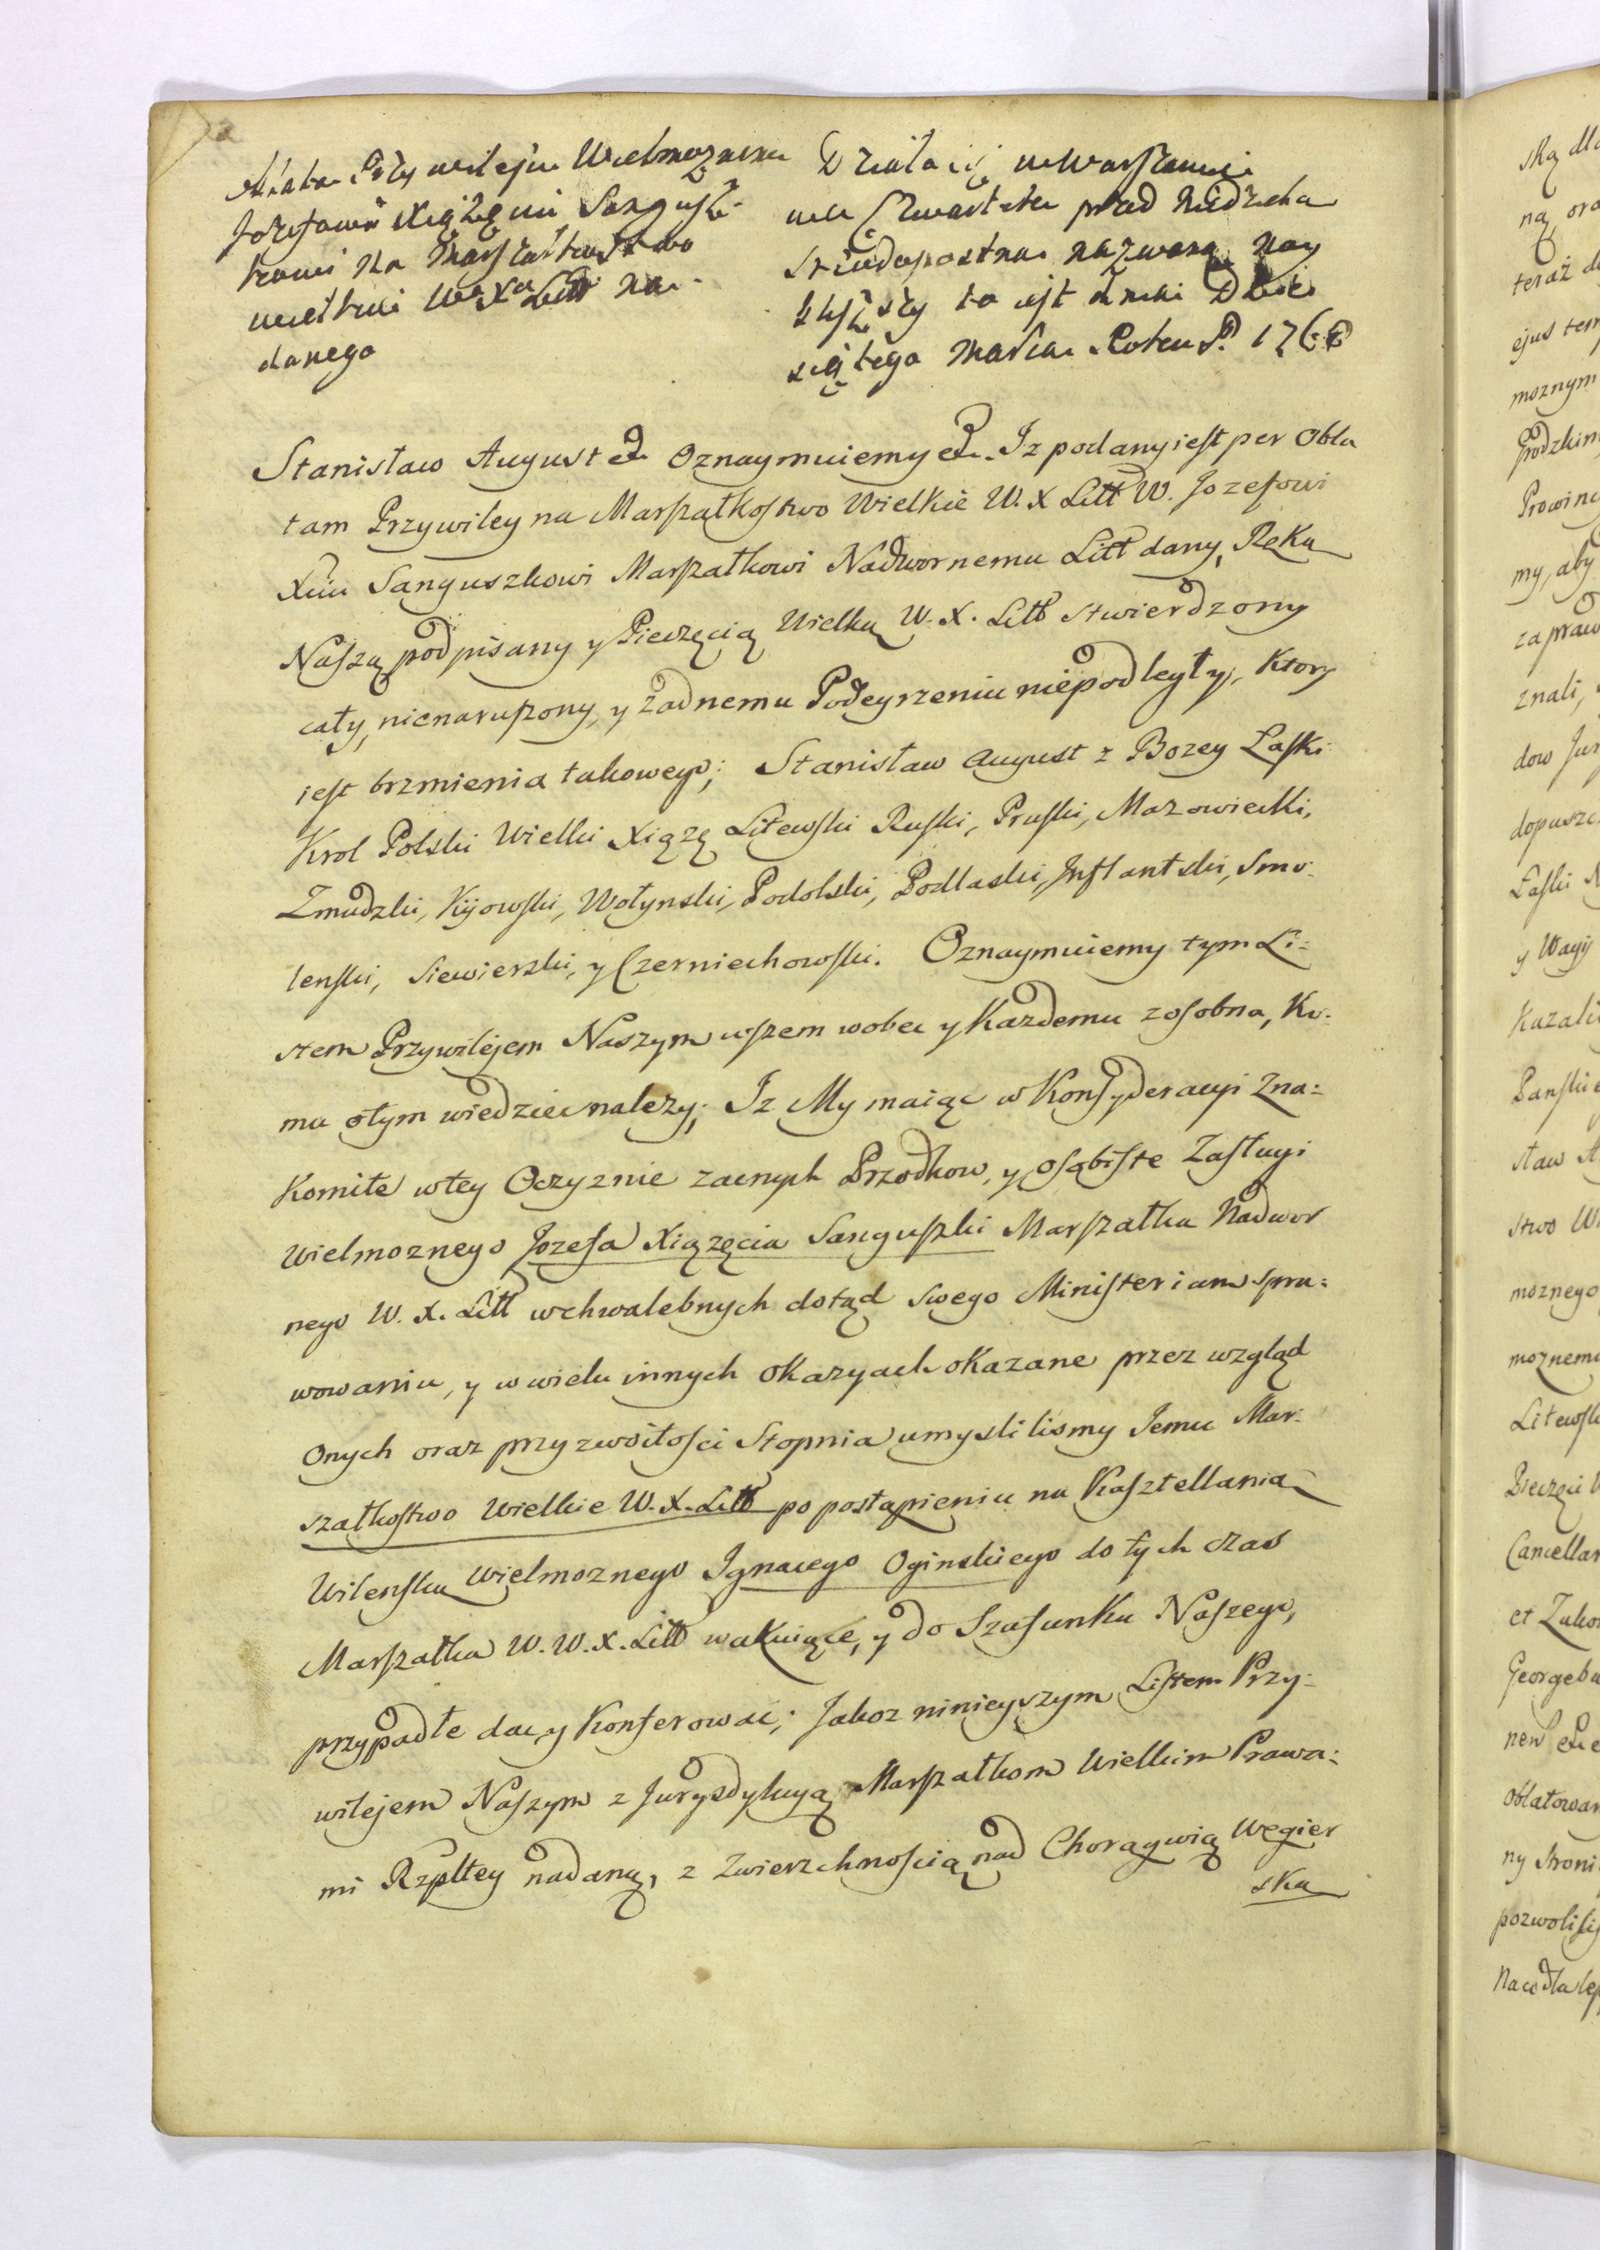 Oblata Przywileju Wielmoznemu
Jozefowi Xiążęciu Sangusz-
kowi na Marszałkowstwo
wielkie W. Xa Litt na-
danego
Działo się w Warszawie
we Czwartek przed Niedzielą
Sriodopostną nazwaną nay
bliższy to jest dnia Dzie
siątego Marca Roku P. 1768
Stanisław August etc Oznaymuiemy etc. Iz podany iest per Obla
tam Przywiley na Marszałkostwo Wielkie W. X Litt W. Jozefowi
Xciu Sanguszkowi Marszałkowi Nadwornemu Litt dany, Ręką
Naszą podpisany y Pieczęcią Wielką W. X. Litt stwierdzony
cały, nienaruszony, y żadnemu Podeyrzeniu niepodległy, Ktory
iest brzmienia takowego; Stanisław August z Bozey Łaski
Krol Polski Wielki Xiązę Litewski Ruski, Pruski, Mazowiecki,
Zmudzki, Kijowski, Wołynski, Podolski, Podlaski, Inflantski, Smo:
lenski, Siewierski, y Czerniechowski. Oznaymuiemy tym Li:
stem Przywilejem Naszym wszem wobec y Kazdemu zosobna, Ko:
mu otym wiedziec nalezy; Iz My maiąc w Konsyderacyi Zna:
Komite wtey Oczyznie zacnych Przodkow, y osobiste Zasługi
Wielmoznego Jozefa Xiązęcia Sanguszki Marszałka Nadwor
nego W. X. Litt wchwalebnych dotąd swego Ministerium spra:
wowaniu, y w wielu innych okazyach okazane przez wzgląd
Onych oraz przyzwoitości Stopnia umyslilismy Jemu Mar:
szałkostwo Wielkie W. X. Litt po postąpieniu na Kasztellanią
Wilenską Wielmoznego Ignacego Oginskiego do tych czas
Marszałka W. W. X. Litt wakuiące, y do Szafunku Naszego,
przypadłe dac y Konferowac; Jakoz ninieyszym Listem Przy:
wilejem Naszym z Jurysdykcyą Marszałkom Wielkim Prawa:
mi Rzpltey nadaną, z Zwierzchnoscią nad Chorągwią Węgier
ską